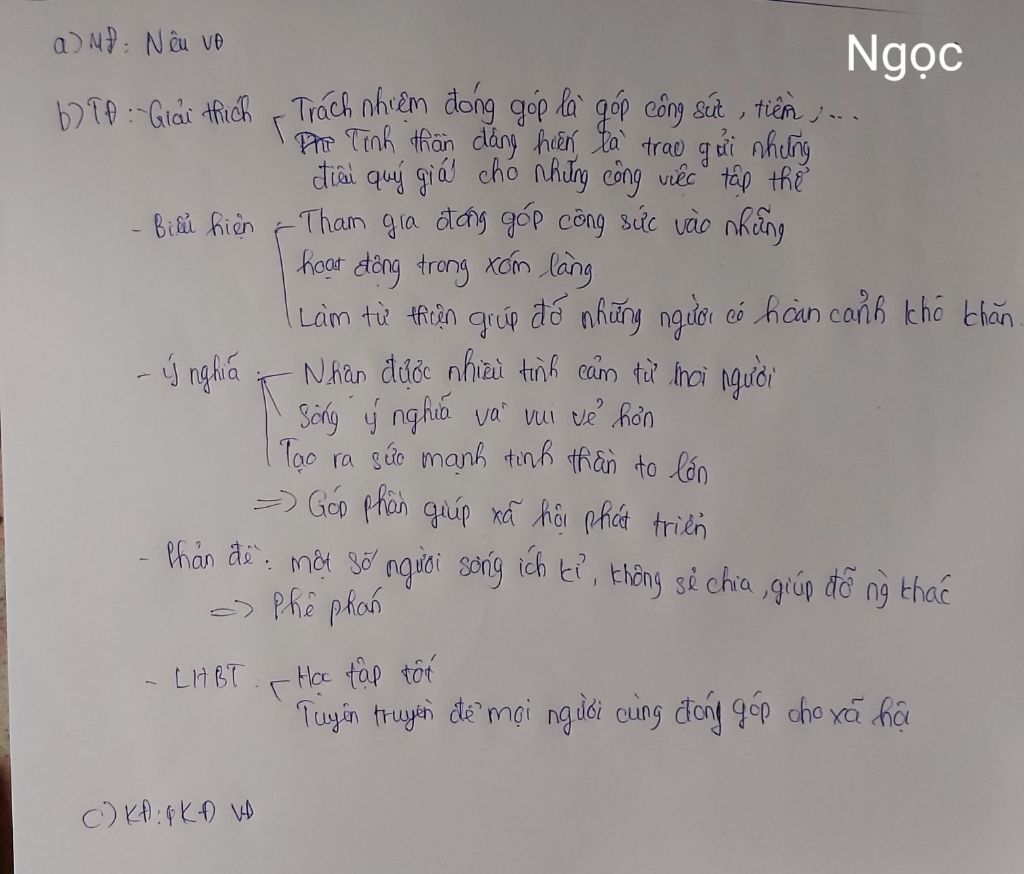 a) MĐ: Nêu VĐ
Ngọc
b) TĐ: - Giải thích - Trách nhiệm đóng góp là góp công sức, tiền, ...
Tinh thần dâng hiến là trao gửi những
điều quý giá cho những công việc tập thể
- Biểu hiện - Tham gia đóng góp công sức vào những
hoạt động trong xóm làng
Làm từ thiện giúp đỡ những người có hoàn cảnh khó khăn.
- Ý nghĩa - Nhận được nhiều tình cảm từ mọi người
Sống ý nghĩa và vui vẻ hơn
Tạo ra sức mạnh tinh thần to lớn
=> Góp phần giúp xã hội phát triển
- Phản đề: một số người sống ích kỉ, không sẻ chia, giúp đỡ ng khác
=> Phê phán
- LHBT: - Học tập tốt
Tuyên truyền để mọi người cùng đóng góp cho xã hội
c) KĐ: KĐ VĐ